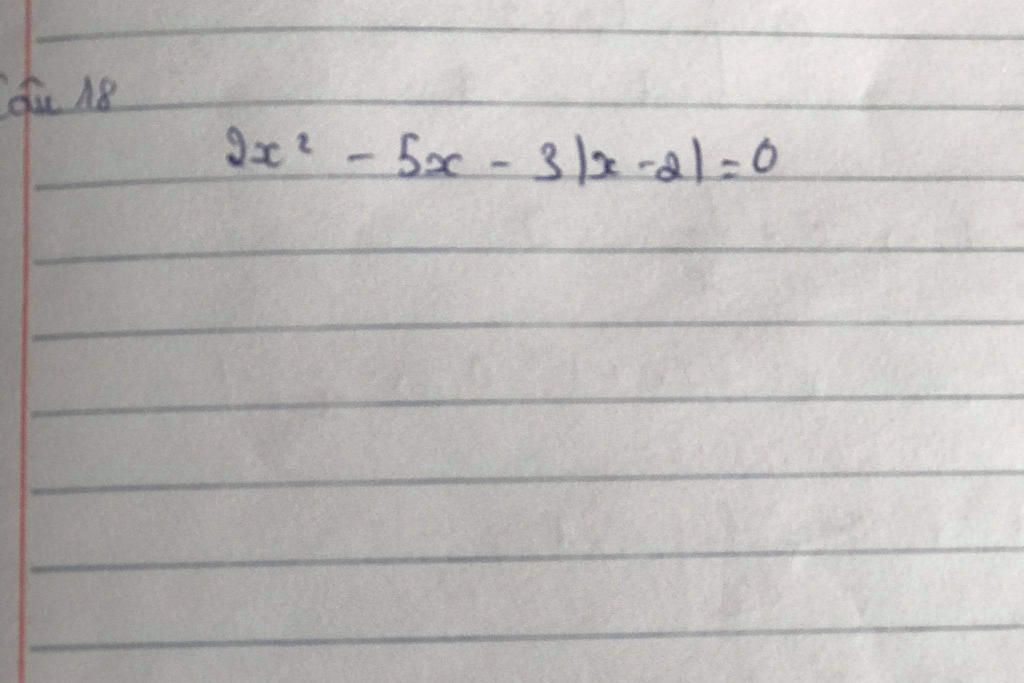 Câu 18
2x² - 5x - 3|x - 2| = 0